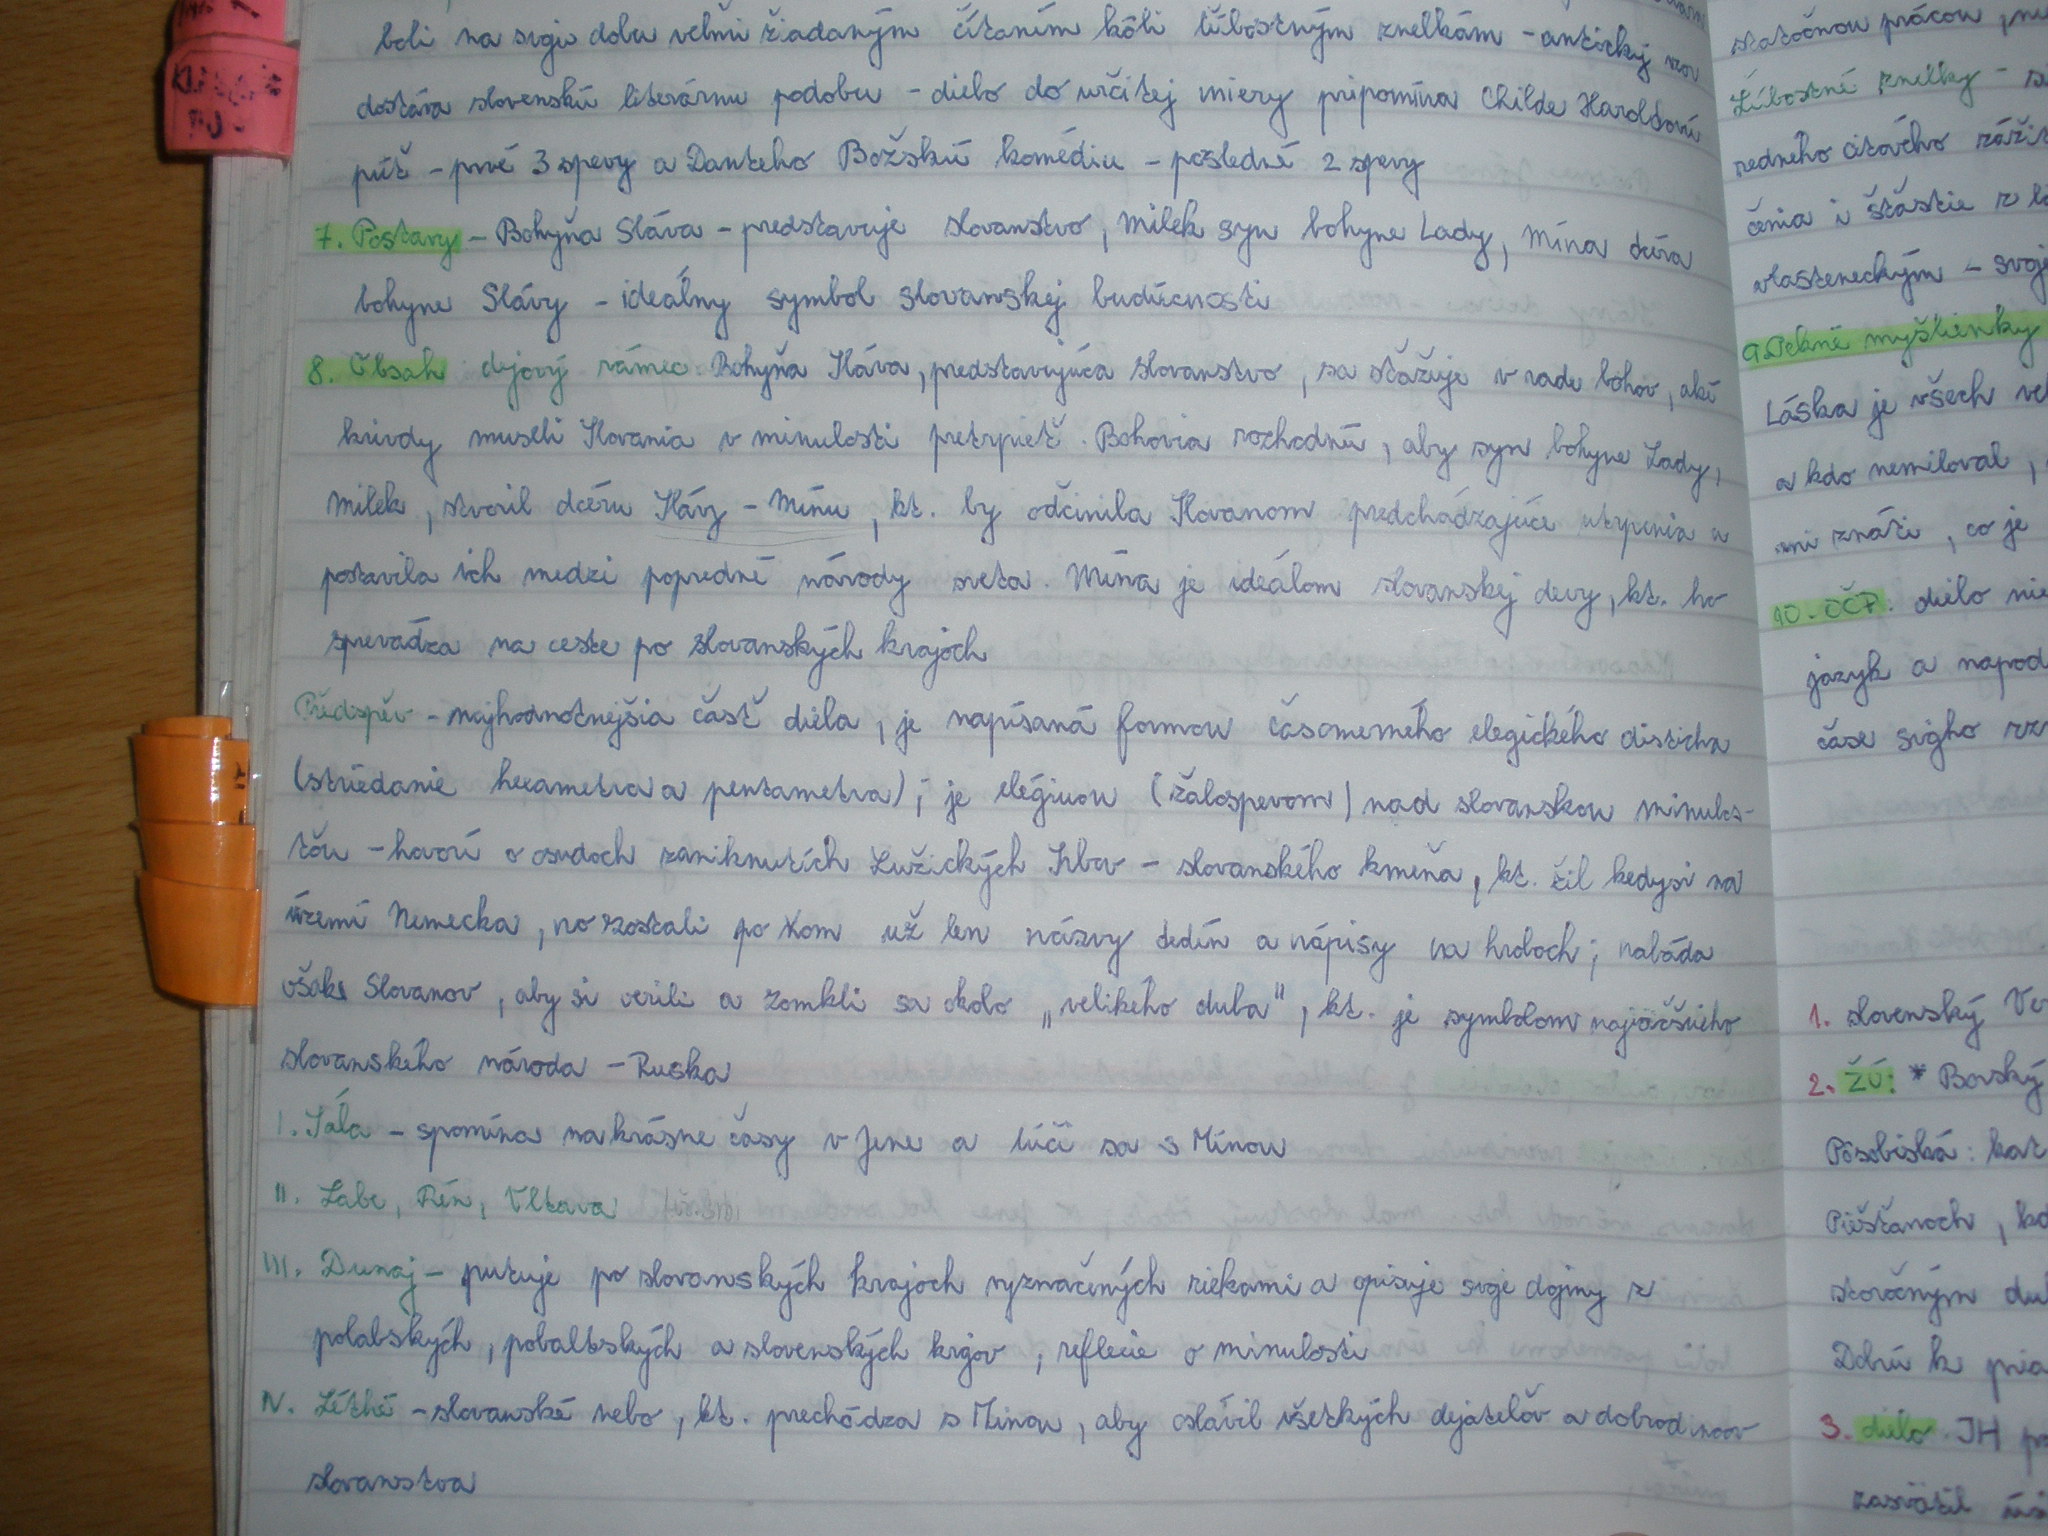 boli na svoju dobu veľmi žiadaným čítaním kôli ľúbostným znelkám - antický
dostáva slovenskú literárnu podobu - dielo do určitej miery pripomína Childe Haroldovu
púť - prvé 3 spevy a Danteho Božskú komédiu - posledné 2 spevy
7. Postavy - Bohyňa Sláva - predstavuje slovanstvo, Milek syn bohyne Lady, Mína dcéra
bohyne Slávy - ideálny symbol slovanskej budúcnosti
8. Obsah dejový rámec Bohyňa Sláva, predstavujúca slovanstvo, sa sťažuje v rade bohov, aké
krivdy museli Slovania v minulosti pretrpieť. Bohovia rozhodnú, aby syn bohyne Lady,
Milek, stvoril dcéru Slávy - Mínu, kt. by odčinila Slovanom predchádzajúce utrpenia a
postavila ich medzi popredné národy sveta. Mína je ideálom slovanskej devy, kt. ho
sprevádza na ceste po slovanských krajoch
Předspěv - najhodnotnejšia časť diela, je napísaná formou časomerného elegického disticha
(striedanie hexametra a pentametra); je elégiou (žalospevom) nad slovanskou minulos-
ťou - hovorí o osudoch zaniknutých Lužických Srbov - slovanského kmeňa, kt. žil kedysi na
území Nemecka, no zostali po ňom už len názvy dedín a nápisy na hroboch; nabáda
však Slovanov, aby si verili a zomkli sa okolo „velikého duba", kt. je symbolom najväčšieho
slovanského národa - Ruska
I. Sála - spomína na krásne časy v Jene a lúči sa s Mínou
II. Labe, Rén, Vltava
III. Dunaj - putuje po slovanských krajoch vyznačených riekami a opisuje svoje dojmy z
polabských, pobaltských a slovenských krajov, reflexie o minulosti
IV. Léthé - slovanské nebo, kt. prechádza s Mínou, aby oslávil všetkých dejateľov a dobrodincov
slovanstva
statočnou prácou,
Ľúbostné znelky -
citového
šťastie z
vlasteneckým - svoj
9. Pekné myšlienky
Láska je všech
a kdo nemiloval,
ani znáti, co je
10. OČP. dielo nie
jazyk a napod
čase svojho
1. slovenský
2. ŽÚ: * Borský
Pôsobiská:
Piešťanoch,
Dobrú k
3. dielo JH
zasvätil